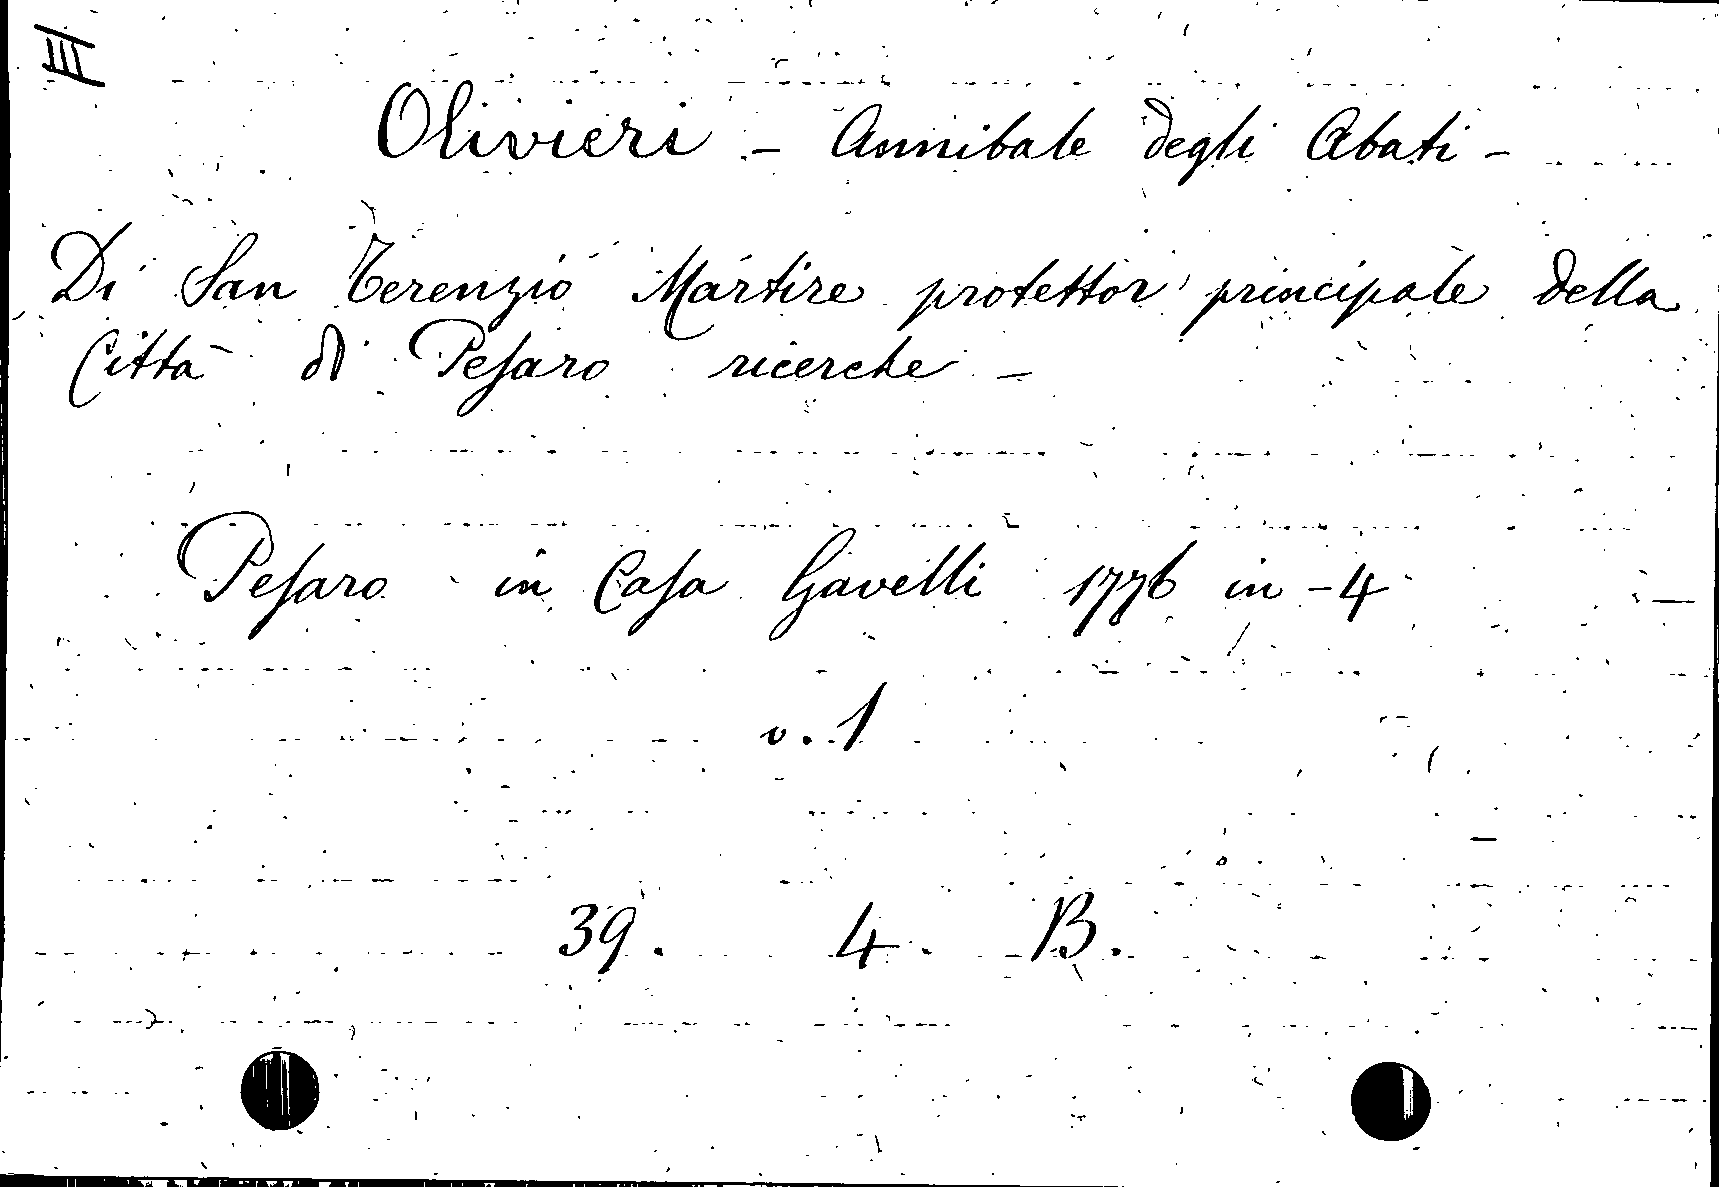 III
Olivieri - Annibale degli Abati -
Di San Terenzio Martire protettor principale della
Città di Pesaro ricerche -
Pesaro in Casa Gavelli 1776 in-4
v. 1
39. 4. B.